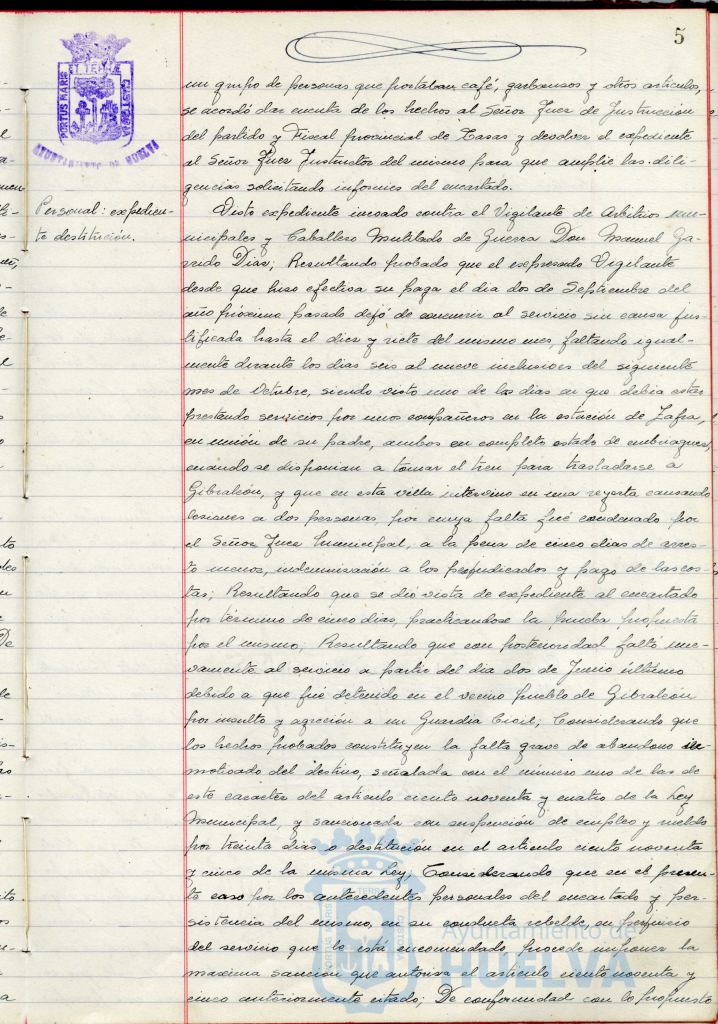 5
PORTUS MARIS ET TERRE CUSTODIA
AYUNTAMIENTO DE HUELVA
Personal: expedien-
te destitución.
un grupo de personas que portaban café, garbansos y otros articulos,
se acordó dar cuenta de los hechos al Señor Juez de Instrucción
del partido y Fiscal provincial de Tasas y devolver el expediente
al Señor Juez Instructor del mismo para que amplie las dili-
gencias solicitando informes del encartado.
Visto expediente incoado contra el Vigilante de Arbitrios mu-
nicipales y Caballero Mutilado de Guerra Don Manuel Ga-
rrido Dias; Resultando probado que el expresado Vigilante
desde que hiso efectiva su paga el dia dos de Septiembre del
año próximo pasado dejó de concurrir al servicio sin causa jus-
tificada hasta el dies y siete del mismo mes, faltando igual-
mente durante los dias seis al nueve inclusives del siguiente
mes de Octubre, siendo visto uno de los dias en que debia estar
prestando servicios por unos compañeros en la estación de Zafra,
en unión de su padre, ambos en completo estado de embriagues,
cuando se disponian a tomar el tren para trasladarse a
Gibraleón, y que en esta villa intervino en una reyerta causando
lesiones a dos personas, por cuya falta fué condenado por
el Señor Juez Municipal, a la pena de cinco dias de arres-
to menor, indemnisación a los perjudicados y pago de las cos-
tas; Resultando que se dió vista de expediente al encartado
por término de cinco dias, practicandose la prueba propuesta
por el mismo; Resultando que con posterioridad faltó nue-
vamente al servicio a partir del dia dos de Junio último
debido a que fué detenido en el vecino pueblo de Gibraleón
por insulto y agresión a un Guardia Civil; Considerando que
los hechos probados constituyen la falta grave de abandono in-
motivado del destino, señalada con el número uno de las de
este caracter del articulo ciento noventa y cuatro de la Ley
Municipal, y sancionada con suspensión de empleo y sueldo
por treinta dias o destitución en el articulo ciento noventa
y cinco de la misma Ley; Considerando que en el presen-
te caso por los antecedentes personales del encartado y per-
sistencia del mismo, en su conducta rebelde, en perjuicio
del servicio que le está encomendado, procede imponer la
maxima sanción que autorisa el articulo ciento noventa y
cinco anteriormente citado; De conformidad con lo propuesto
Ayuntamiento de
HUELVA